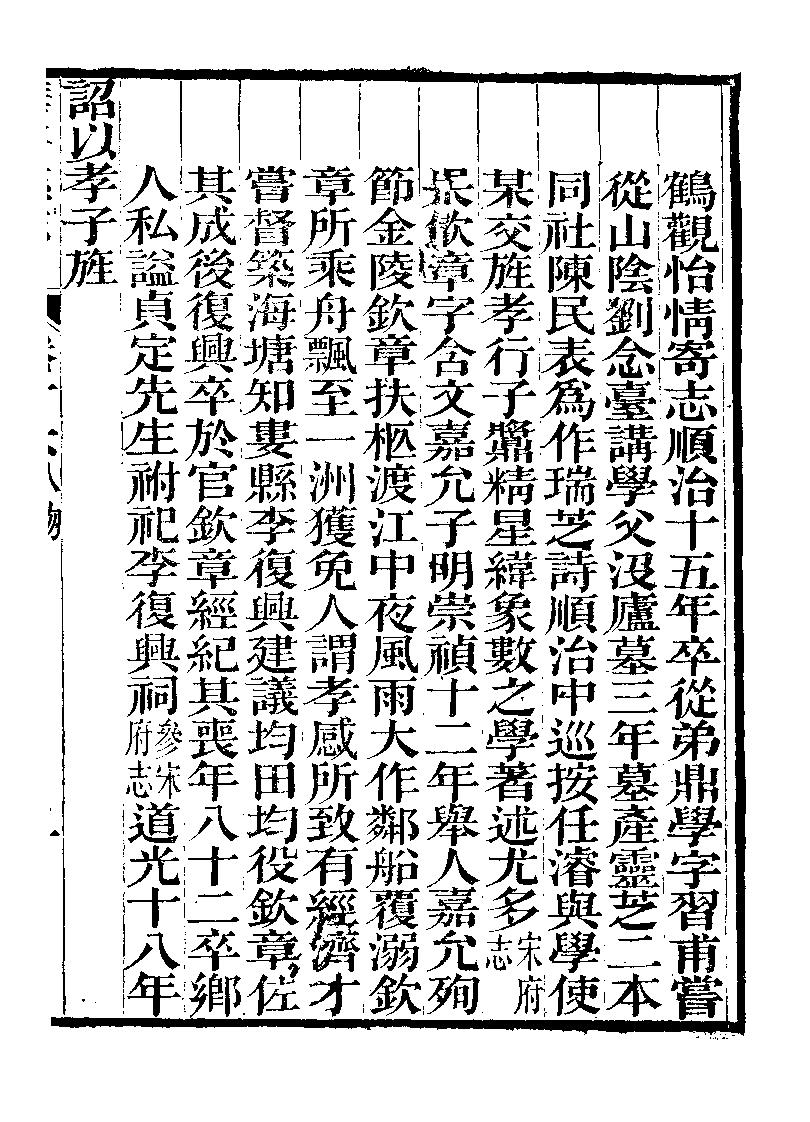 鶴觀怡情寄志順治十五年卒從弟鼎學字習甫嘗
從山陰劉念臺講學父沒廬墓三年墓產靈芝二本
同社陳民表爲作瑞芝詩順治中巡按任濬與學使
某交旌孝行子驥精星緯象數之學著述尤多宋府志
吴欽章字含文嘉允子明崇禎十二年舉人嘉允殉
節金陵欽章扶柩渡江中夜風雨大作鄰船覆溺欽
章所乘舟飄至一洲獲免人謂孝感所致有經濟才
嘗督築海塘知婁縣李復興建議均田均役欽章佐
其成後復興卒於官欽章經紀其喪年八十二卒鄉
人私謚貞定先生祔祀李復興祠參宋府志道光十八年
詔以孝子旌